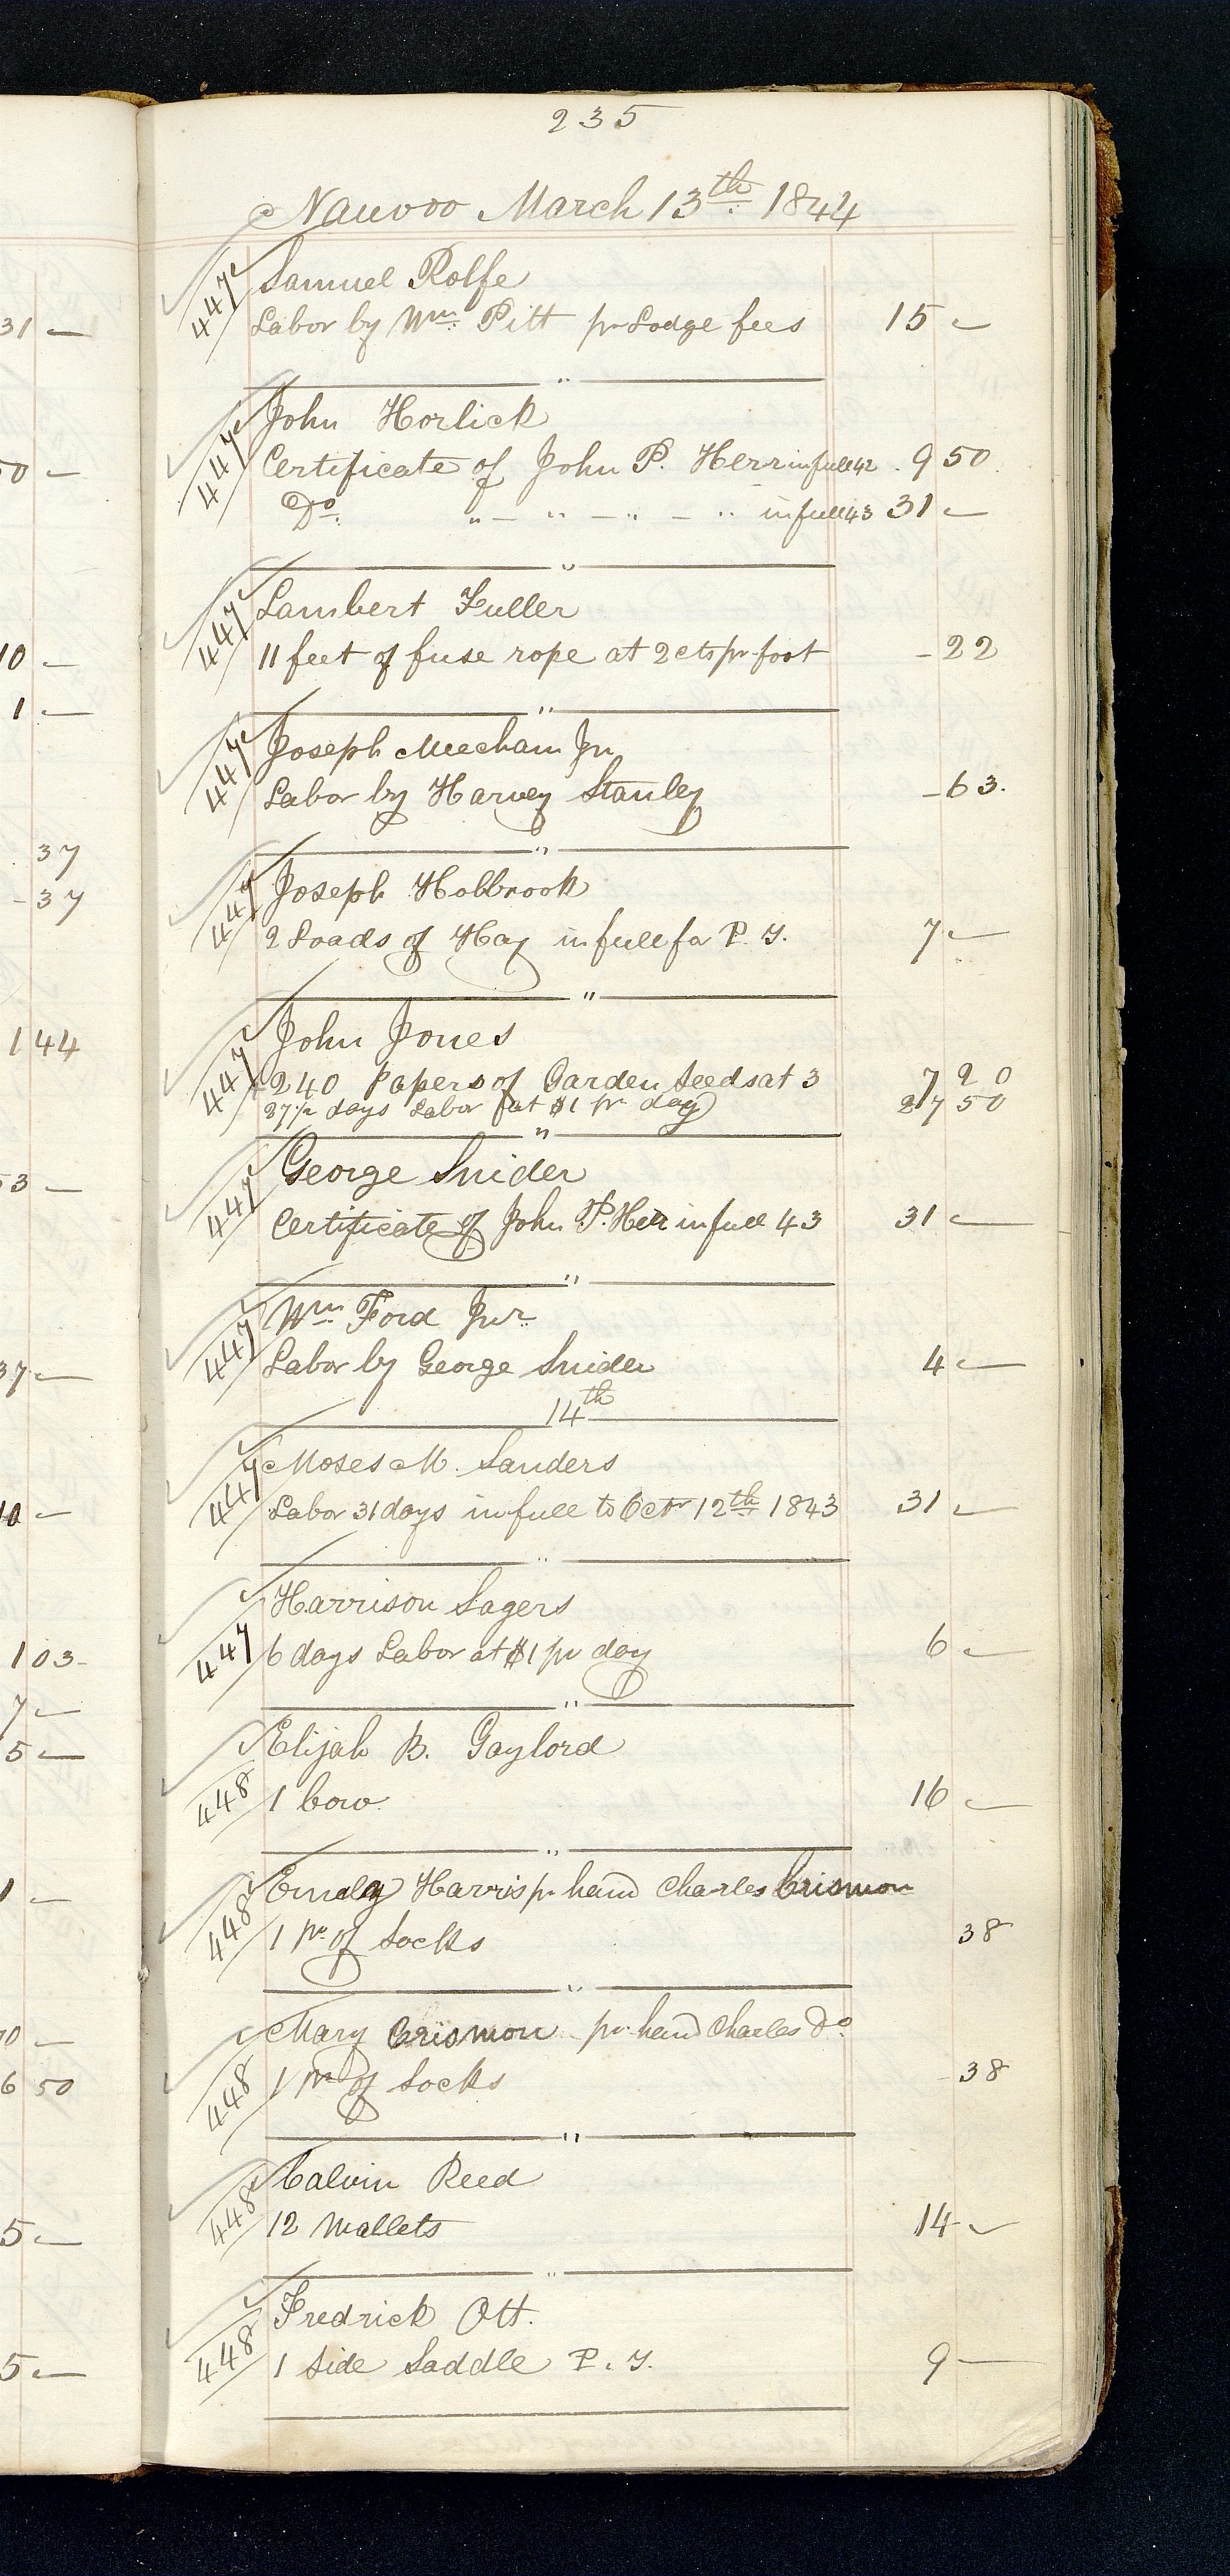 235
Nauvoo March 13th 1844
447 Samuel Rolfe
Labor by Wm Pitt pr Lodge fees 15 —
"
447 John Horlick
Certificate of John P. Herr in full 42 9 50
Do. " — " — " — " in full 43 31 —
"
447 Lambert Fuller
11 feet of fuse rope at 2 cts pr foot — 22
"
447 Joseph Meecham Jr
Labor by Harvey Stanley — 63.
"
447 Joseph Holbrook
2 Loads of Hay in full for P. T. 7 —
"
447 John Jones
240 Papers of Garden Seeds at 3 7 20
27 1/2 days Labor at $1 pr day 27 50
"
447 George Snider
Certificate of John P. Herr in full 43 31 —
"
447 Wm Ford Jur
Labor by George Snider 4 —
14th
447 Moses M. Sanders
Labor 31 days in full to Octr 12th 1843 31 —
"
447 Harrison Sagers
6 days Labor at $1 pr day 6 —
"
448 Elijah B. Gaylord
1 Cow 16 —
"
448 Emely Harris pr hand Charles Crismon
1 pr of Socks 38
"
448 Mary Crismon pr hand Charles Do
1 pr of Socks — 38
"
448 Calvin Reed
12 Mallets 14 —
"
448 Fredrick Ott.
1 Side Saddle P. T. 9 —
31 —
50 —
10 —
1 —
37
— 37
1 44
53 —
37 —
10 —
1 03 —
7 —
5 —
1 —
6 50
5 —
5 —